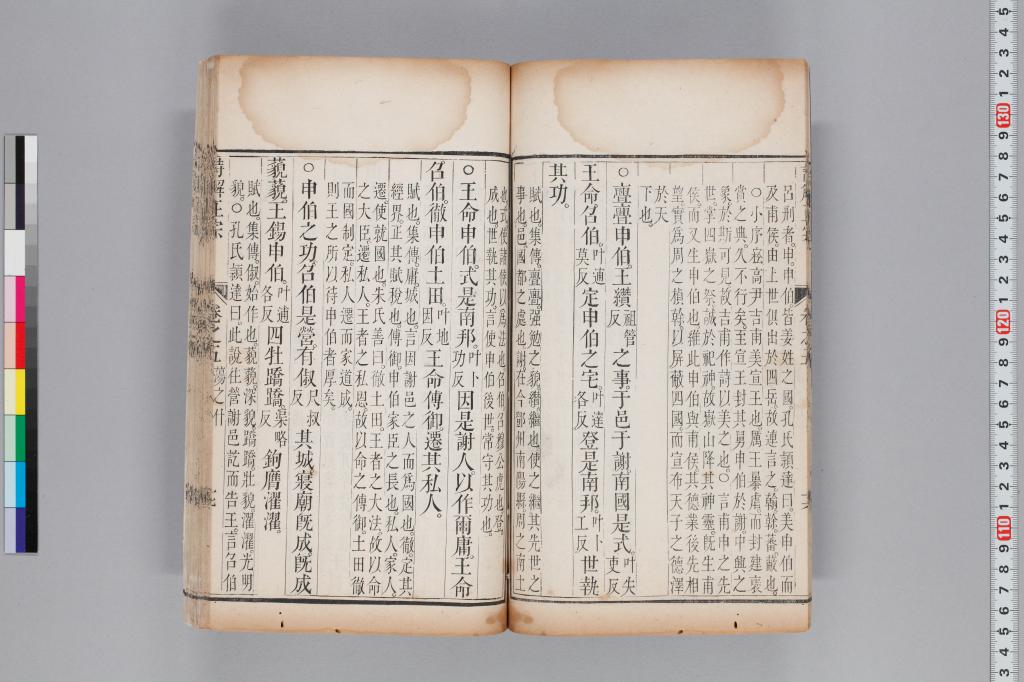 呂刑者。申。申伯。皆姜姓之國。孔氏頴達曰。美申伯而
及甫侯。由上世俱出於四岳。故連言之。翰。榦。蕃。蔽也。
○小序。崧高。尹吉甫美宣王也。厲王暴虐。而封建襃
賞之典。久不行矣。至宣王封其舅申伯於謝。中興之
象於斯可見。故吉甫作詩以美之也。○言申之先
世。掌四嶽之祭。誠於祀神。故嶽山降其神靈。旣生甫
侯。而又生申伯也。維此申伯與甫侯。其德業後先相
望。實爲周之楨榦。以屏蔽四國。而宣布天子之德澤
於天
下也。
○亹亹申伯。王纘祖管反之事。于邑于謝。南國是式。叶失吏反
王命召伯。叶逋莫反定申伯之宅。叶達各反登是南邦。叶卜工反世執
其功。
賦也。集傳。亹亹。强勉之貌。纘。繼也。使之繼其先世之
事也。邑。國都之處也。謝。在今鄧州南陽縣。周之南土
也。式。使諸侯以爲法也。召伯。召穆公虎也。登。
成也。世執其功。言使申伯後世常守其功也。
○王命申伯。式是南邦。叶卜功反因是謝人。以作爾庸。王命
召伯。徹申伯土田。叶地因反王命傅御。遷其私人。
賦也。集傳。庸。城也。言因謝邑之人而爲國也。徹。定其
經界。正其賦稅也。傅御。申伯家臣之長也。私人。家人。
遷。使就國也。朱氏善曰。徹土田。王者之大法。故以命
之大臣。遷私人。王者之私恩。故以命之傅御。土田徹
而國制定。私人遷而家道成。
則王之所以待申伯者厚矣。
○申伯之功。召伯是營。有俶尺叔反其城。寢廟旣成。旣成
藐藐。王錫申伯。叶逋各反四牡蹻蹻。渠略反鉤膺濯濯。
賦也。集傳。俶。始作也。藐藐。深貌。蹻蹻。壯貌。濯濯。光明
貌。○孔氏頴達曰。此說往營謝邑。訖而告王。言召伯
詩解正宗 卷之五 蕩之什